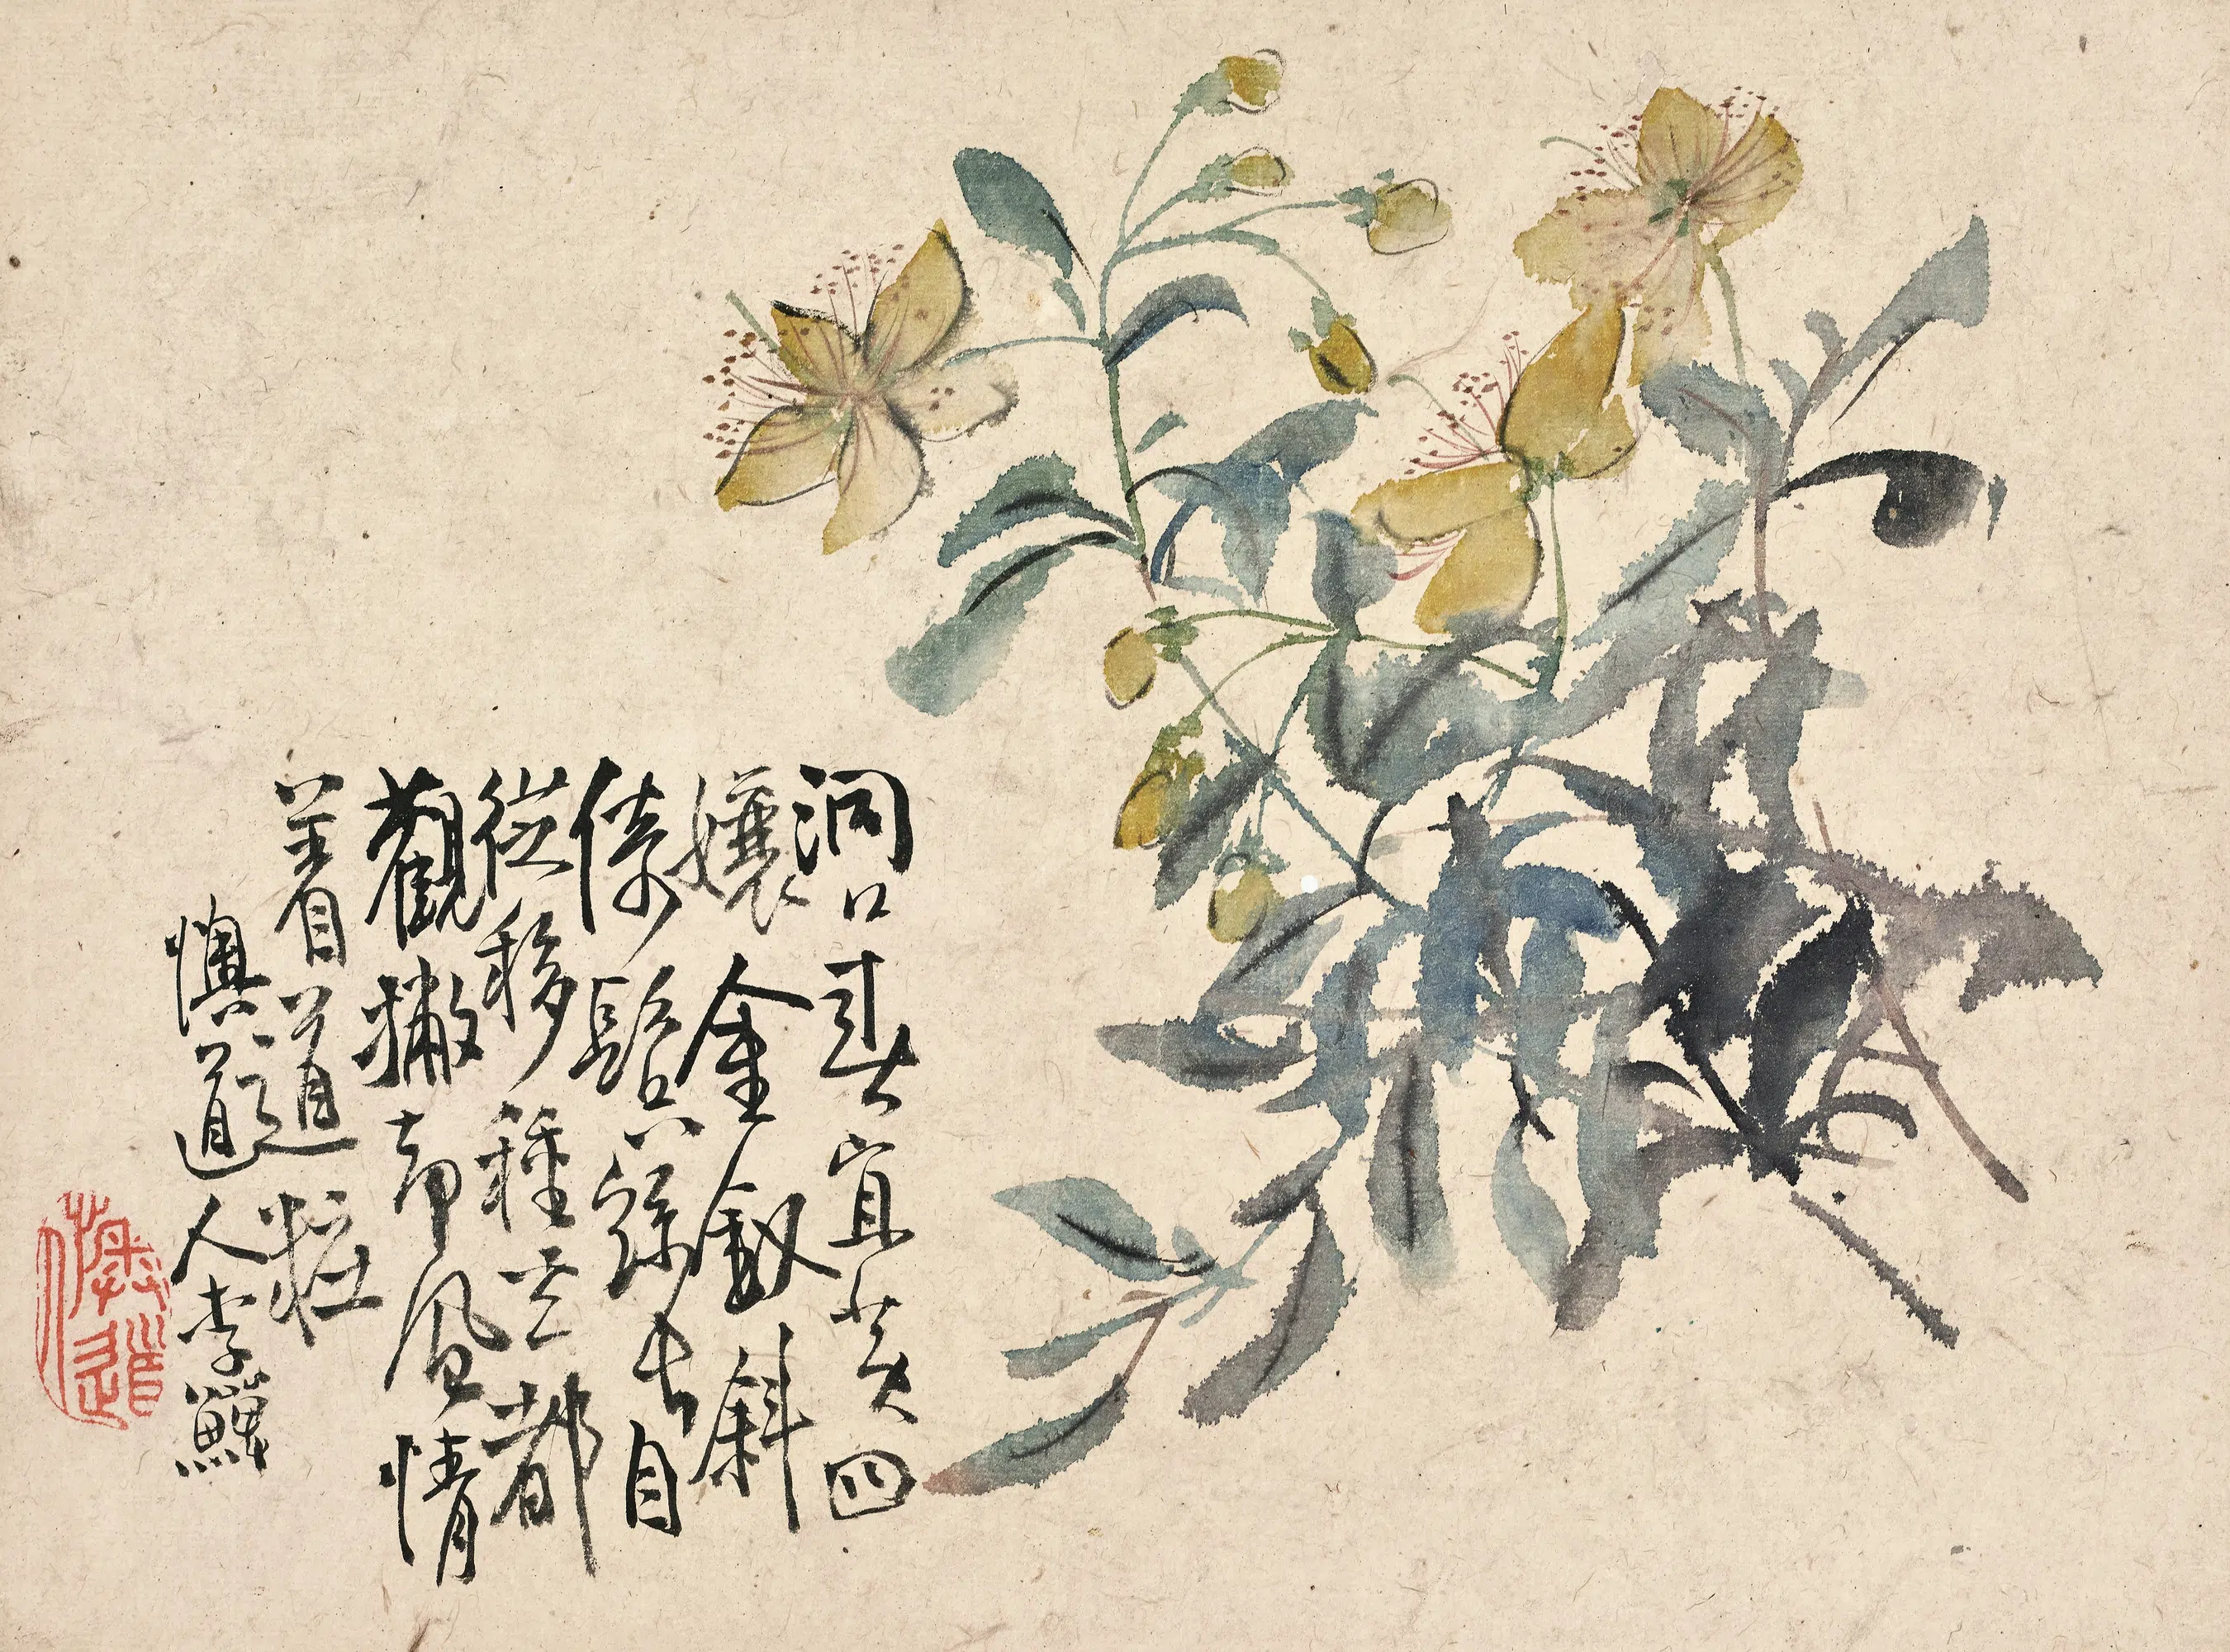 洞口宜黄四
孃金釵斜
倚鬢絲長自
從移種玄都
觀撇却風情
着道粧
懊道人李鱓
懊道人